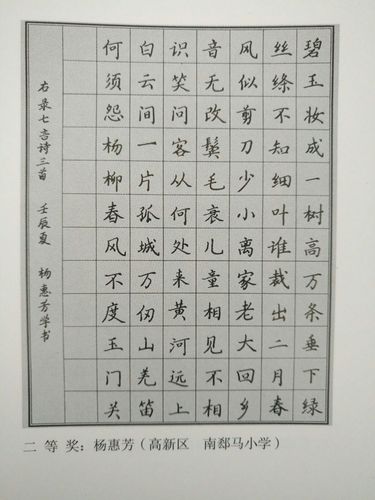 碧玉妆成一树高万条垂下绿
丝绦不知细叶谁裁出二月春
风似剪刀少小离家老大回乡
音无改鬓毛衰儿童相见不相
识笑问客从何处来黄河远上
白云间一片孤城万仞山羌笛
何须怨杨柳春风不度玉门关
右录七言诗三首 壬辰夏 杨惠芳学书
二等奖：杨惠芳（高新区 南郄马小学）